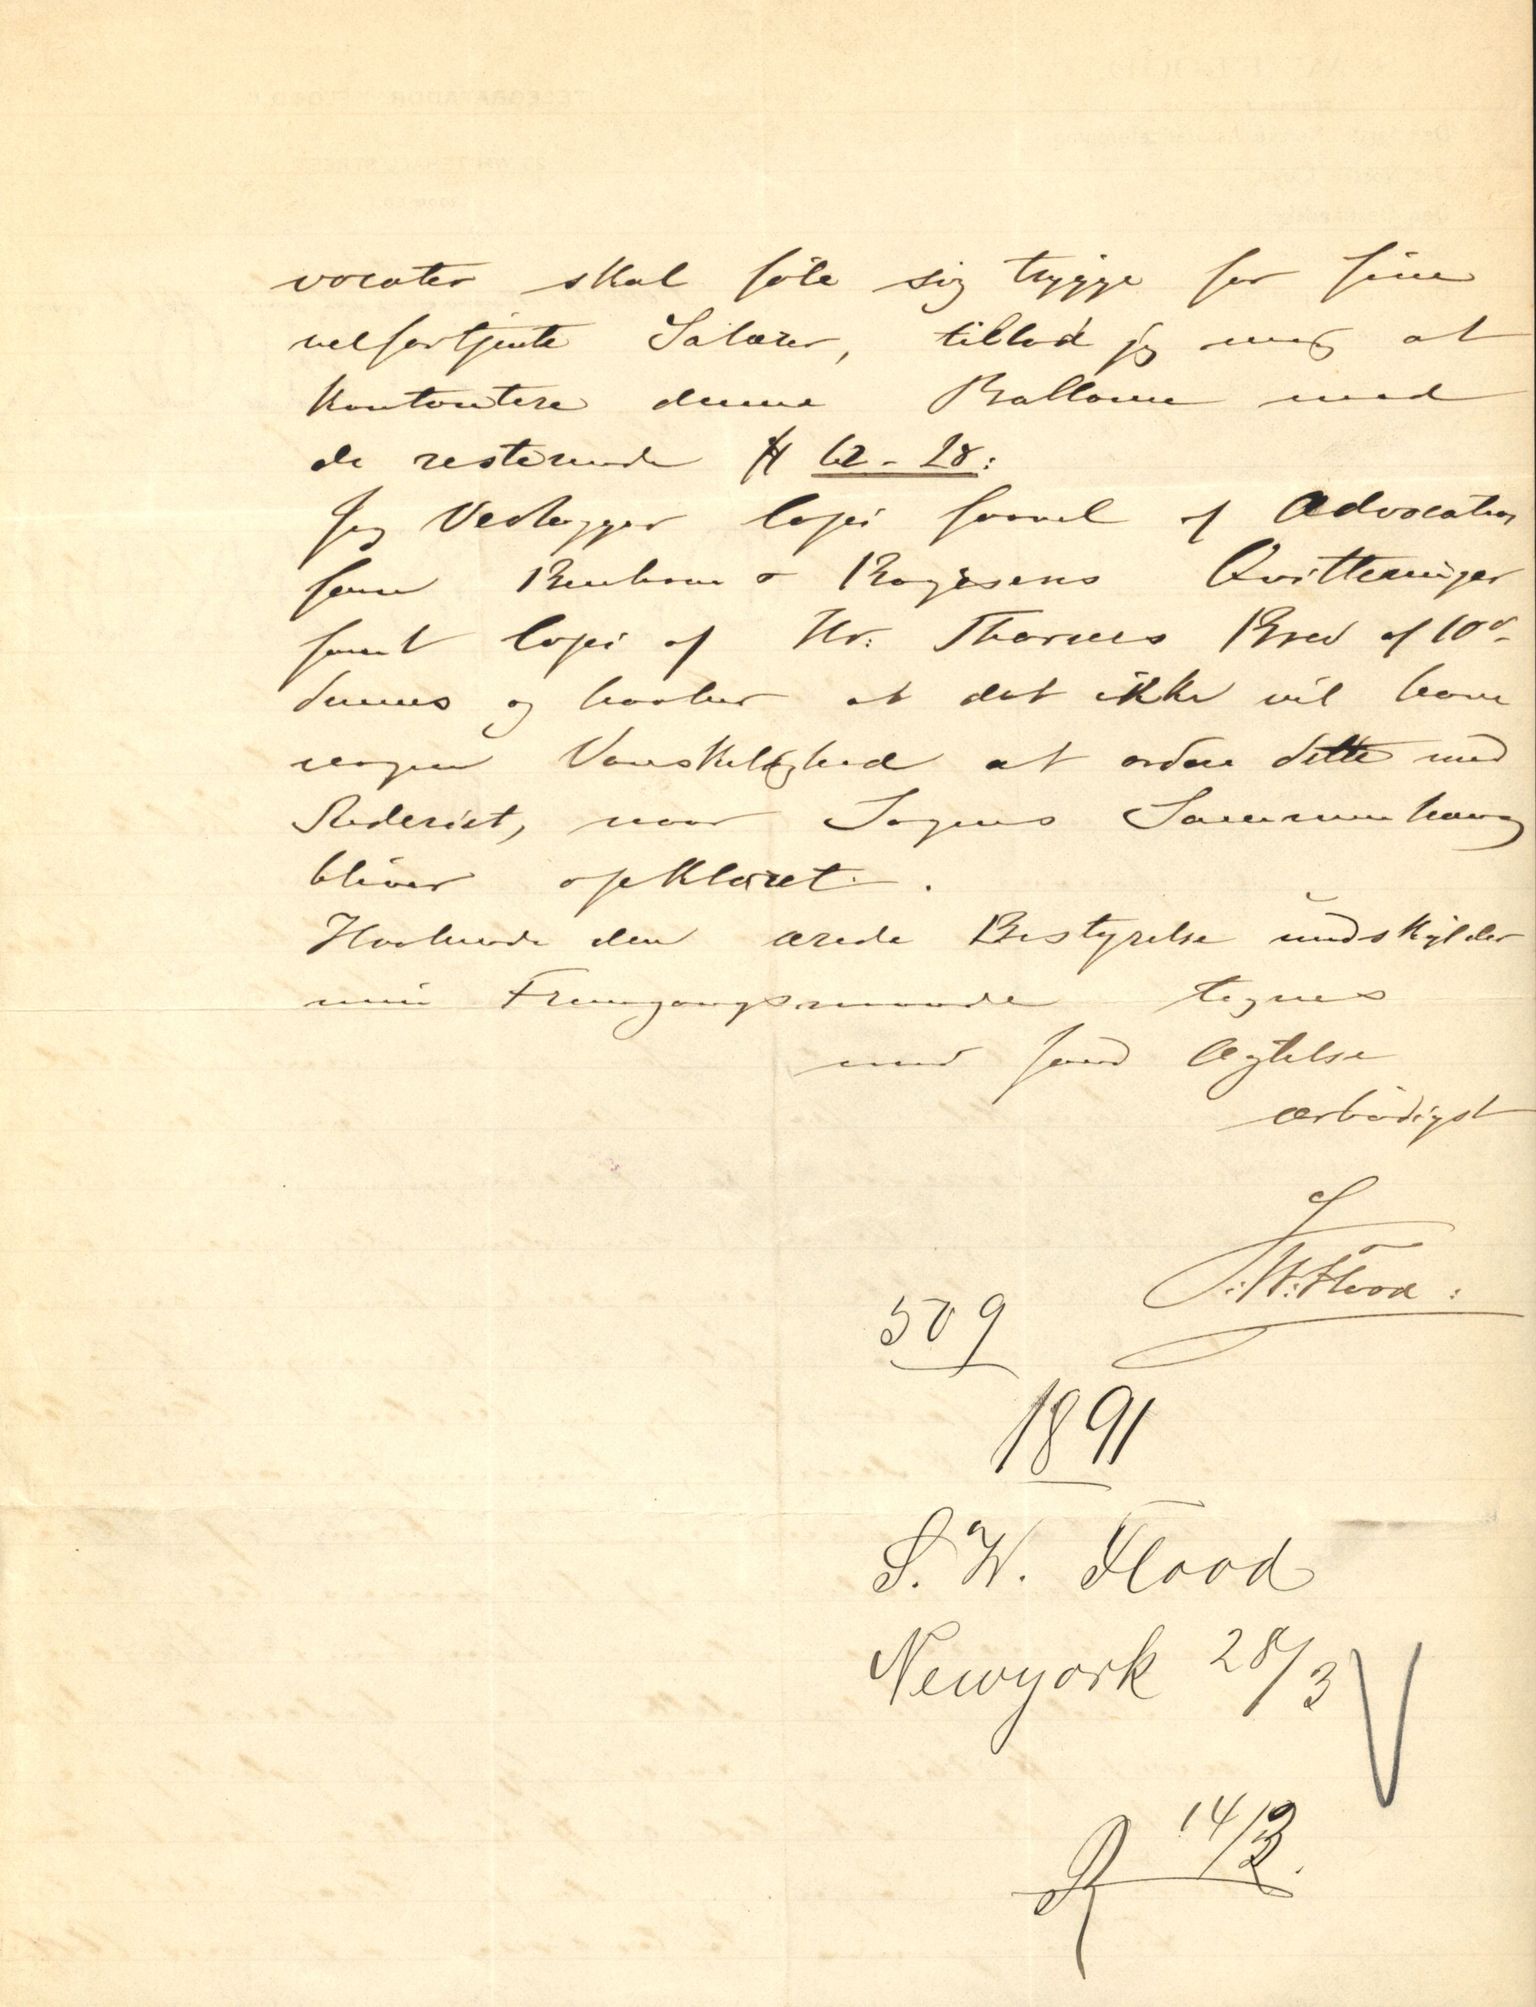 vocater skal föle sig trygge for sine
velfortjente Salærer, tillod jeg mig at
kontentere denne Ballance med
de resterende $ 62-28:
Jeg Vedlægger Copi saavel af Advocaten
som Benham & Boyesens Qvitteringer
samt Copi af Hr: Thornes Brev af 10de
dennes og haaber at det ikke vil have
nogen Vanskelighed at ordne dette med
Rederiet, naar Sagens Sammenhæng
bliver opklaret.
Haabende den ærede Bestyrelse undskylder
min Fremgangsmaade tegnes
med sand Agtelse
ærbödigst
S. W. Flood:
509
1891
S. W. Flood
Newyork 28/3
R 14/3.